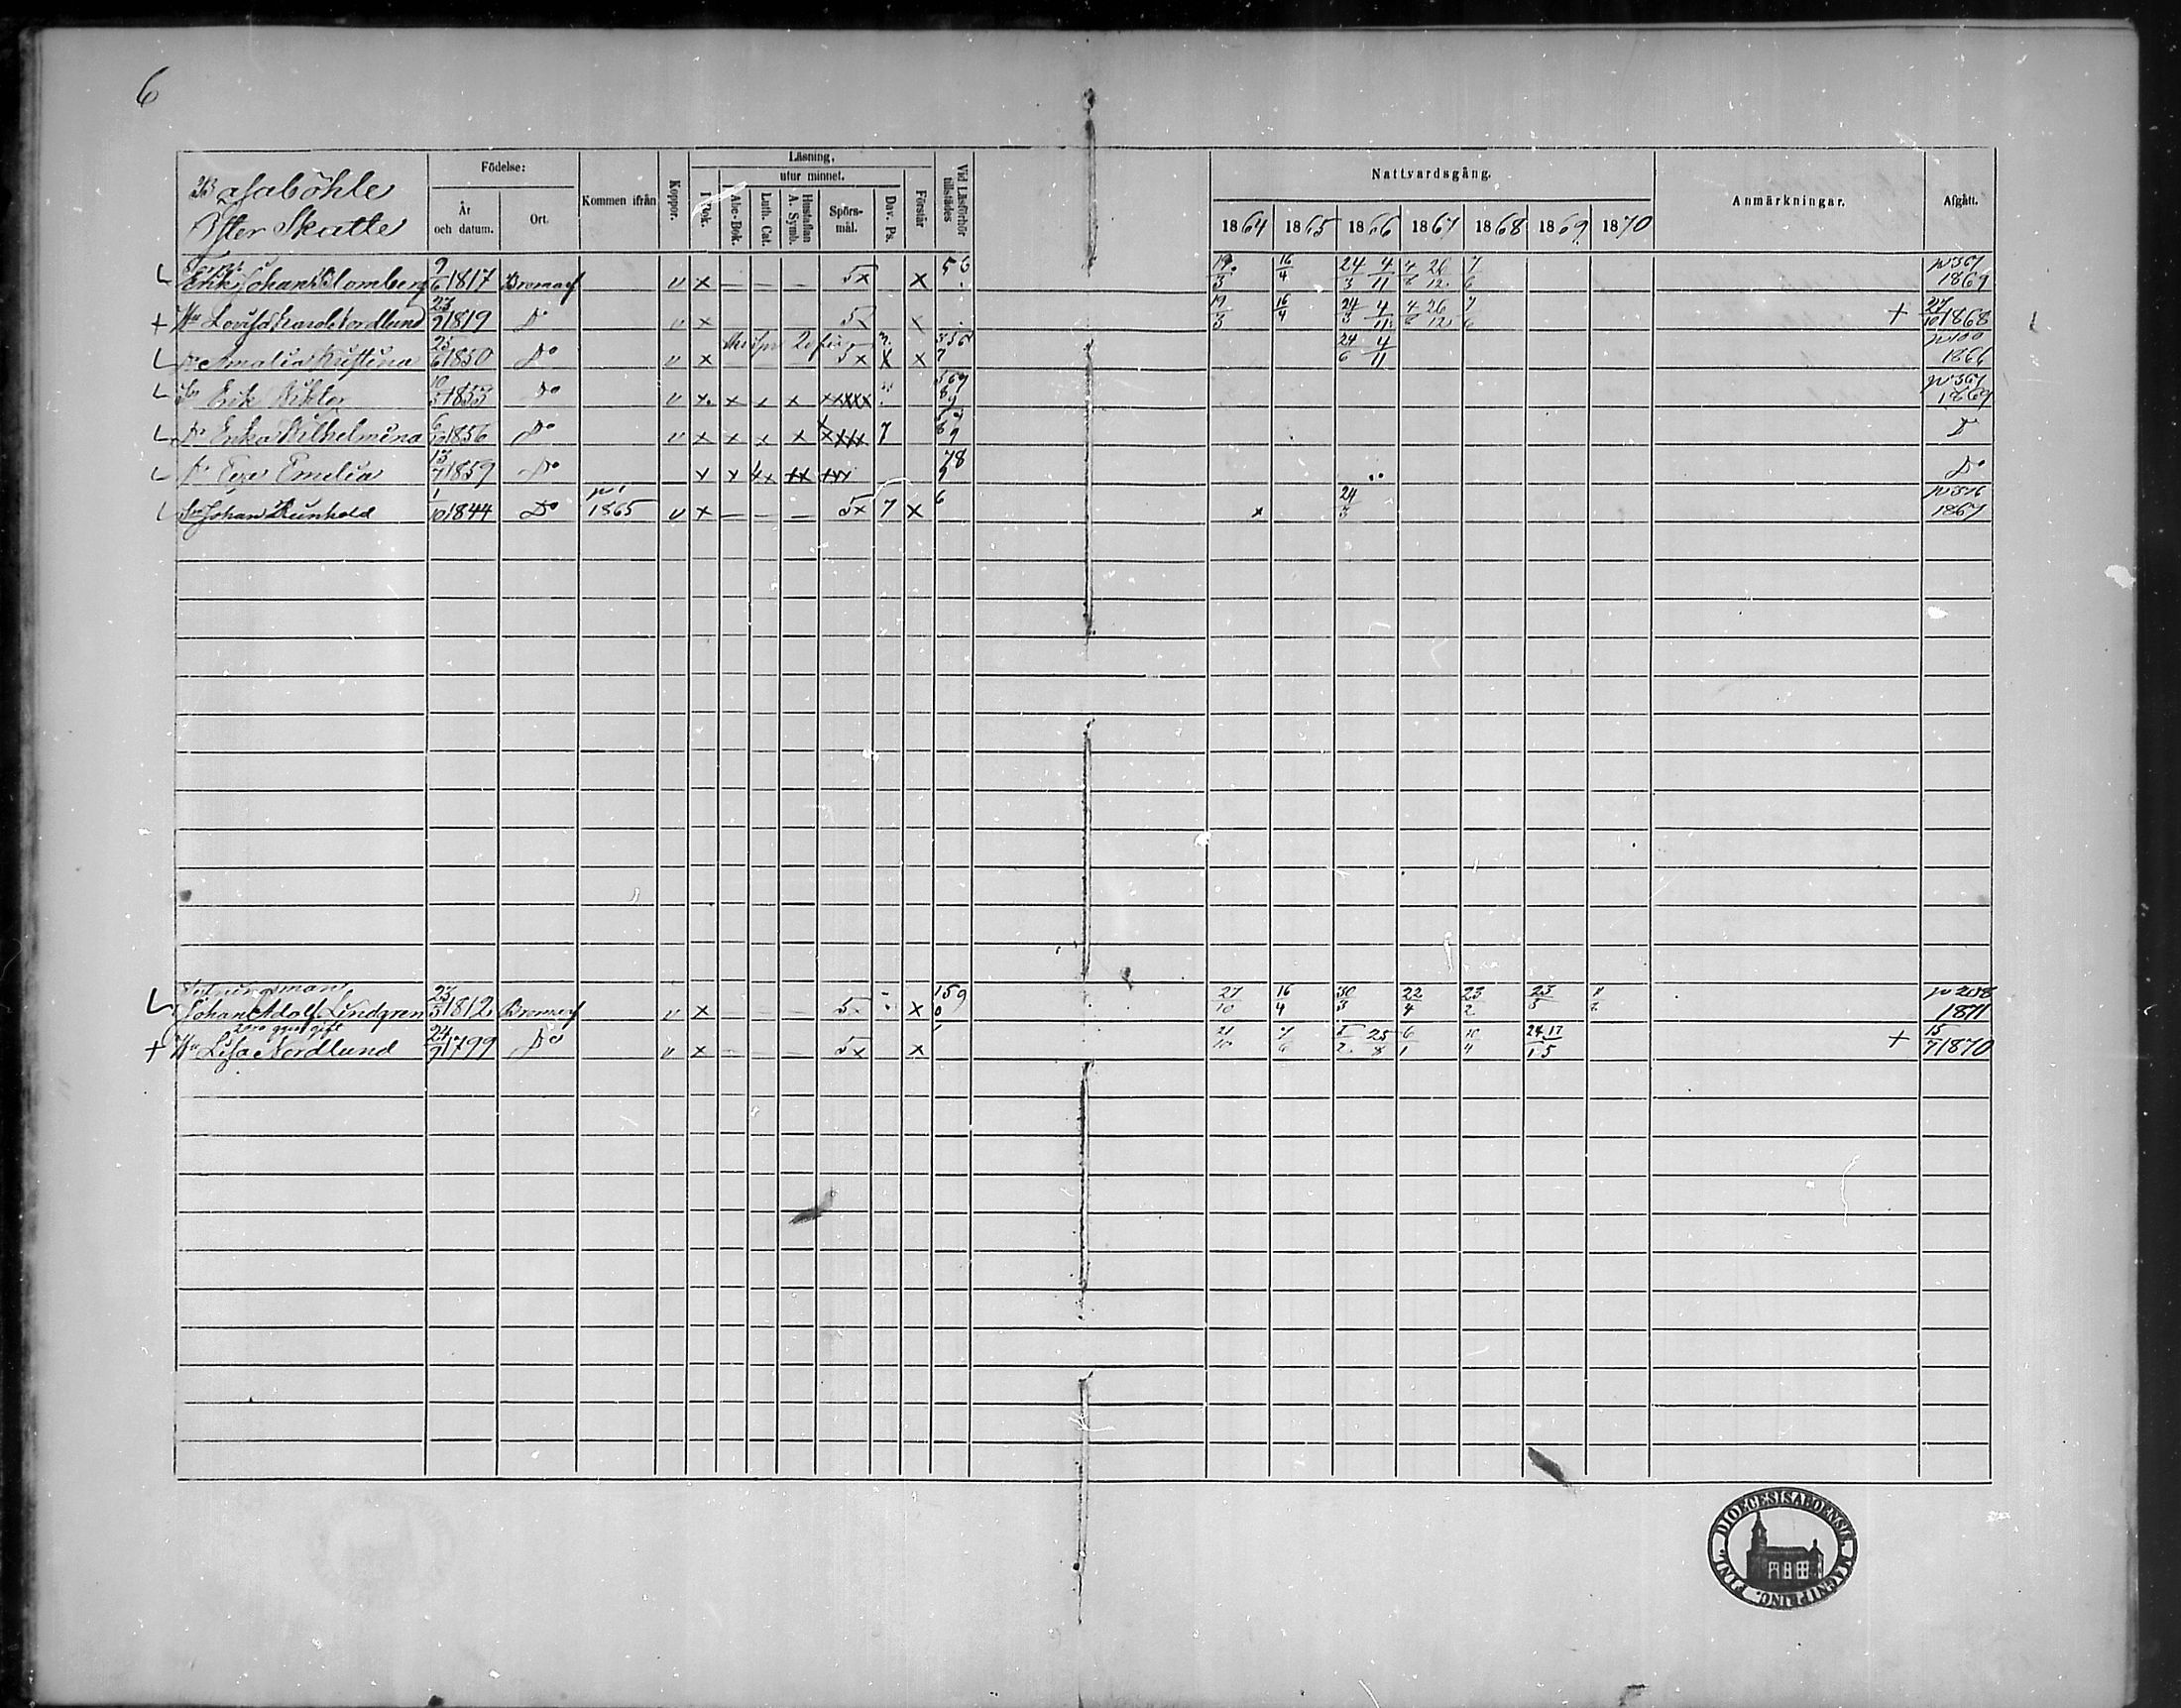 6
Basaböhle
Öster Skatte
Födelse:
År och datum.
Ort.
Kommen ifrån
Koppor.
Läsning,
utur minnet.
Abc-Bok.
Luth. Cat.
Hustaflan A. Symb.
Spörs-mål.
Dav. Ps.
Förstår
Vid Läsförhör tillstädes
Nattvardsgång.
1864 1865 1866 1867 1868 1869 1870
Anmärkningar.
Afgått.
Erik Johan Blomberg 9/6 1817 Bromarf v x — — — 5x x 5 6 19/3 16/4 24/3 4/11 4/8 26/12 7/6 p 367 1869
+ Hu Lovisa Karol. Nordlund 23/9 1819 Do v x — — — 5x x 19/3 16/4 24/3 4/11 4/8 26/12 7/6 + 27/10 1868
Dr Amalia Kristina 25/6 1850 Do v x 5x x x 24/6 4/11 p 100 1866
Sn Erik Viktor 10/5 1853 Do v x x x x xxxxx p 367 1869
Dr Erika Wilhelmina 6/10 1856 Do v x x x x xxxx 7 D
Dr Eva Emelia 13/7 1859 Do x x 4x xx xxx 78 9 Do
Sn Johan Runhold 1/10 1844 Do 1865 v x — — — 5x 7 x 6 x 24/3 1867
Johan Adolf Lindgren 23/5 1812 Bromarf v x — — — 5x x 159 0 27/10 16/4 30/3 22/4 23/2 23/5 p 208 1871
2dra gger gift
+ Hu Lisa Nordlund 24/9 1799 Do v x — — — 5x x 21/10 7/6 25/8 6/1 10/4 24/1 17/5 + 15/7 1870
FINL. DIOECESIS ABOENSIS MAGNI PRINC.